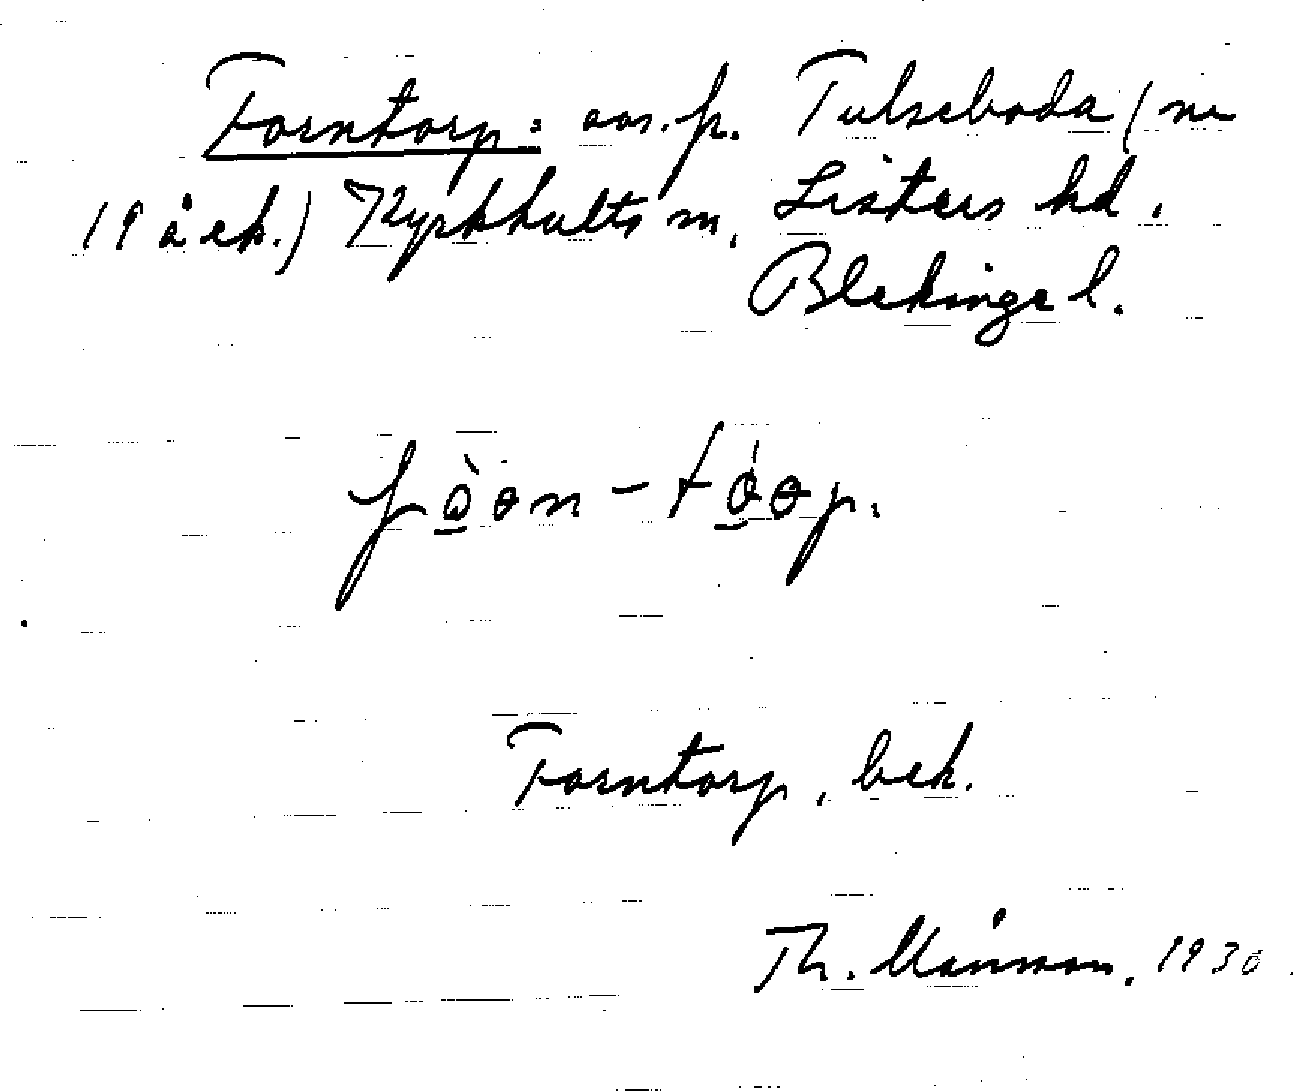 Forntorp: avs. p. Tulseboda (nu
19 åek.) Kyrkhults sn, Listers hd.
Blekinge l.
fò̱ɵn-tó̱ɵp.
Forntorp, bek.
Th. Månsson, 1930.